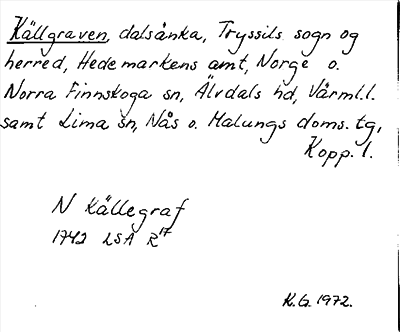 Källgraven, dalsånka, Tryssils sogn og
herred, Hedemarkens amt, Norge o.
Norra Finnskoga sn, Älvdals hd, Värml.l.
samt Lima sn, Nås o. Malungs doms. tg,
Kopp. l.
N Källegraf
1742 LSA R17
K.G. 1972.